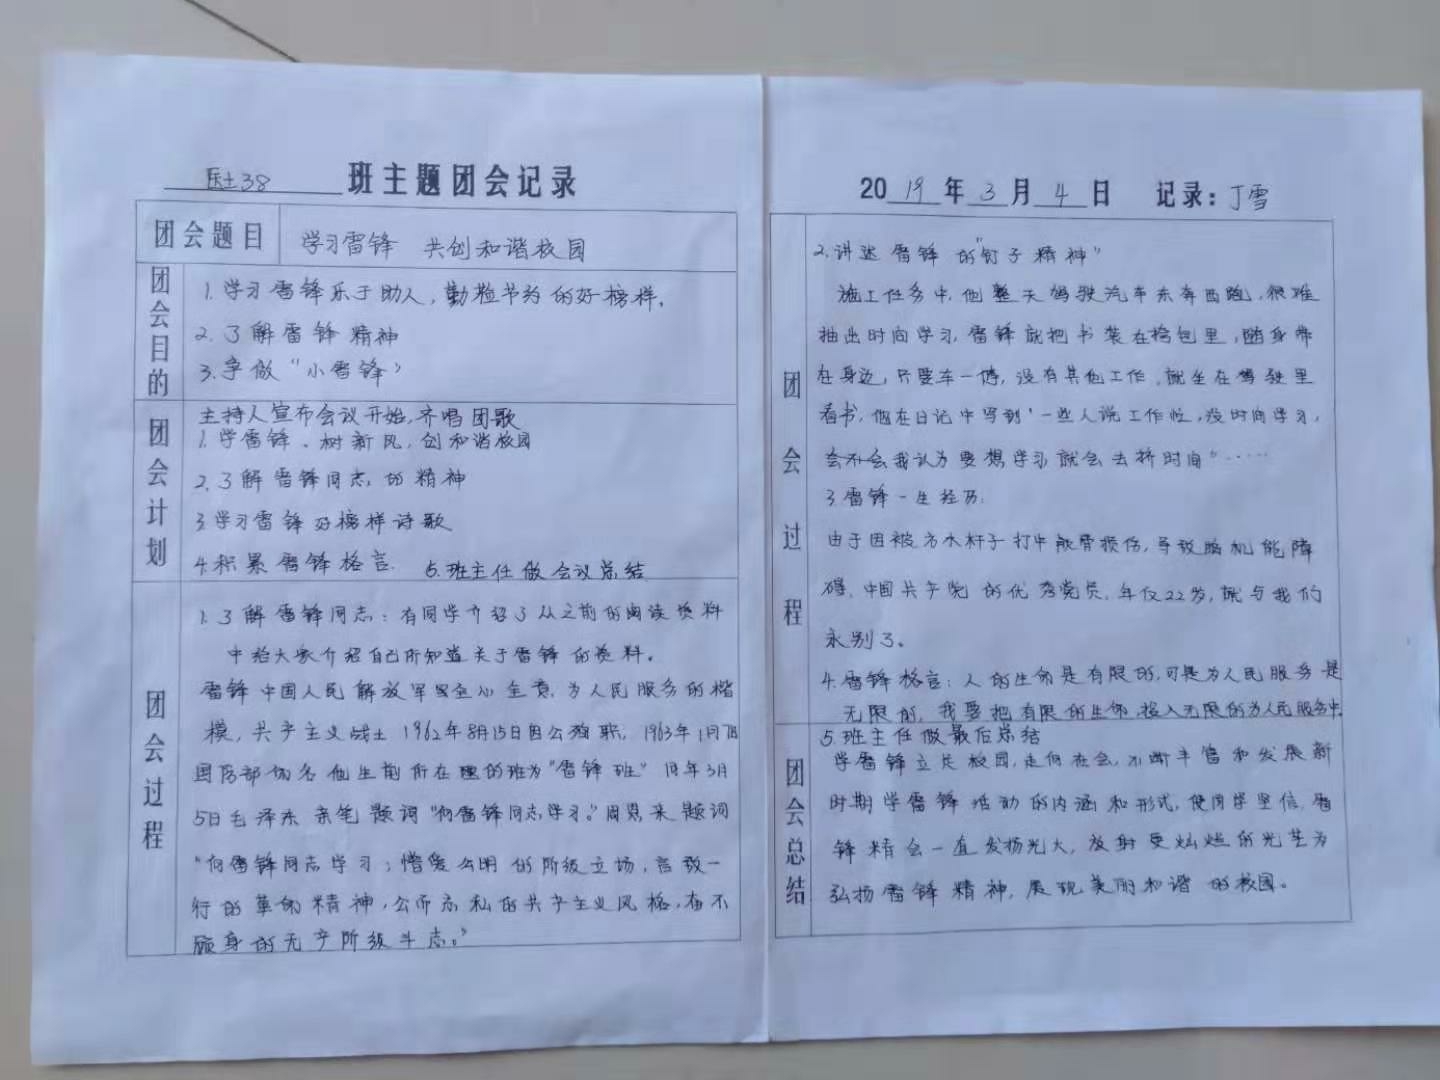 医士38 班主题团会记录
团会题目 学习雷锋 共创和谐校园
团会目的
1.学习雷锋乐于助人,勤俭节约的好榜样。
2.了解雷锋精神
3.争做“小雷锋”
团会计划
主持人宣布会议开始,齐唱团歌
1.学雷锋、树新风,创和谐校园
2.了解雷锋同志的精神
3.学习雷锋好榜样诗歌
4.积累雷锋格言. 5.班主任做会议总结
团会过程
1.了解雷锋同志:有同学介绍了从之前的阅读资料
中给大家介绍自己所知道关于雷锋的资料。
雷锋中国人民解放军 全心全意为人民服务的楷
模,共产主义战士1962年8月15日因公殉职,1963年1月7日
国防部命名他生前所在 的班为“雷锋班”同年3月
5日毛泽东亲笔题词“向雷锋同志学习。”周恩来题词
“向雷锋同志学习;憎爱分明的阶级立场,言行一
行的革命精神,公而忘私的共产主义风格,奋不
顾身的无产阶级斗志。”
2019年3月4日 记录:丁雪
团会过程
2.讲述雷锋的“钉子精神”
施工任务中,他整天驾驶汽车东奔西跑,很难
抽出时间学习,雷锋就把书装在挎包里,随身带
在身边,只要车一停,没有其他工作,就坐在驾驶里
看书,他在日记中写到‘一些人说工作忙,没时间学习,
会不会我认为要想学习就会去挤时间”……
3.雷锋一生经历:
由于因被方木杆子打中 骨损伤,导致脑机能障
碍,中国共产党的优秀党员,年仅22岁,就与我们
永别了。
4.雷锋格言:人的生命是有限的,可是为人民服务是
无限的,我要把有限的生命,投入无限的为人民服务中.
5.班主任做最后总结
团会总结
学雷锋立足校园,走向社会,不断丰富和发展新
时期学雷锋活动的内涵和形式,使同学坚信,雷
锋精会一直发扬光大,放射更灿烂的光芒为
弘扬雷锋精神,展现美丽和谐的校园。